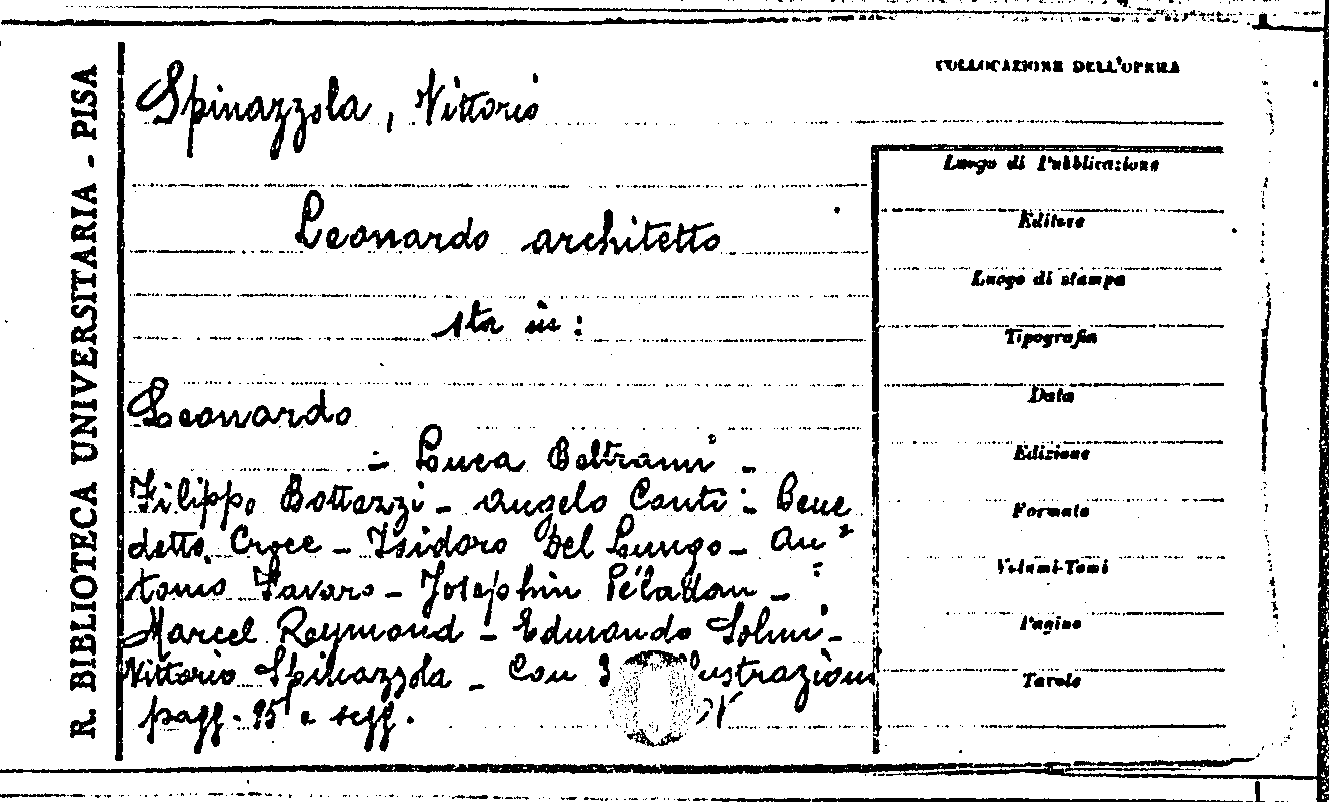 R. BIBLIOTECA UNIVERSITARIA - PISA
COLLOCAZIONE DELL'OPERA
Spinazzola, Vittorio
Leonardo architetto
sta in:
Leonardo
- Luca Beltrami -
Filippo Bottazzi - Angelo Conti - Bene
detto Croce - Isidoro Del Lungo - An
tonio Favaro - Josephin Péladan -
Marcel Reymond - Edmondo Solmi -
Vittorio Spinazzola - Con
pagg. 95 e segg.
Luogo di Pubblicazione
Editore
Luogo di stampa
Tipografia
Data
Edizione
Formato
Volumi-Tomi
Pagine
Tavole